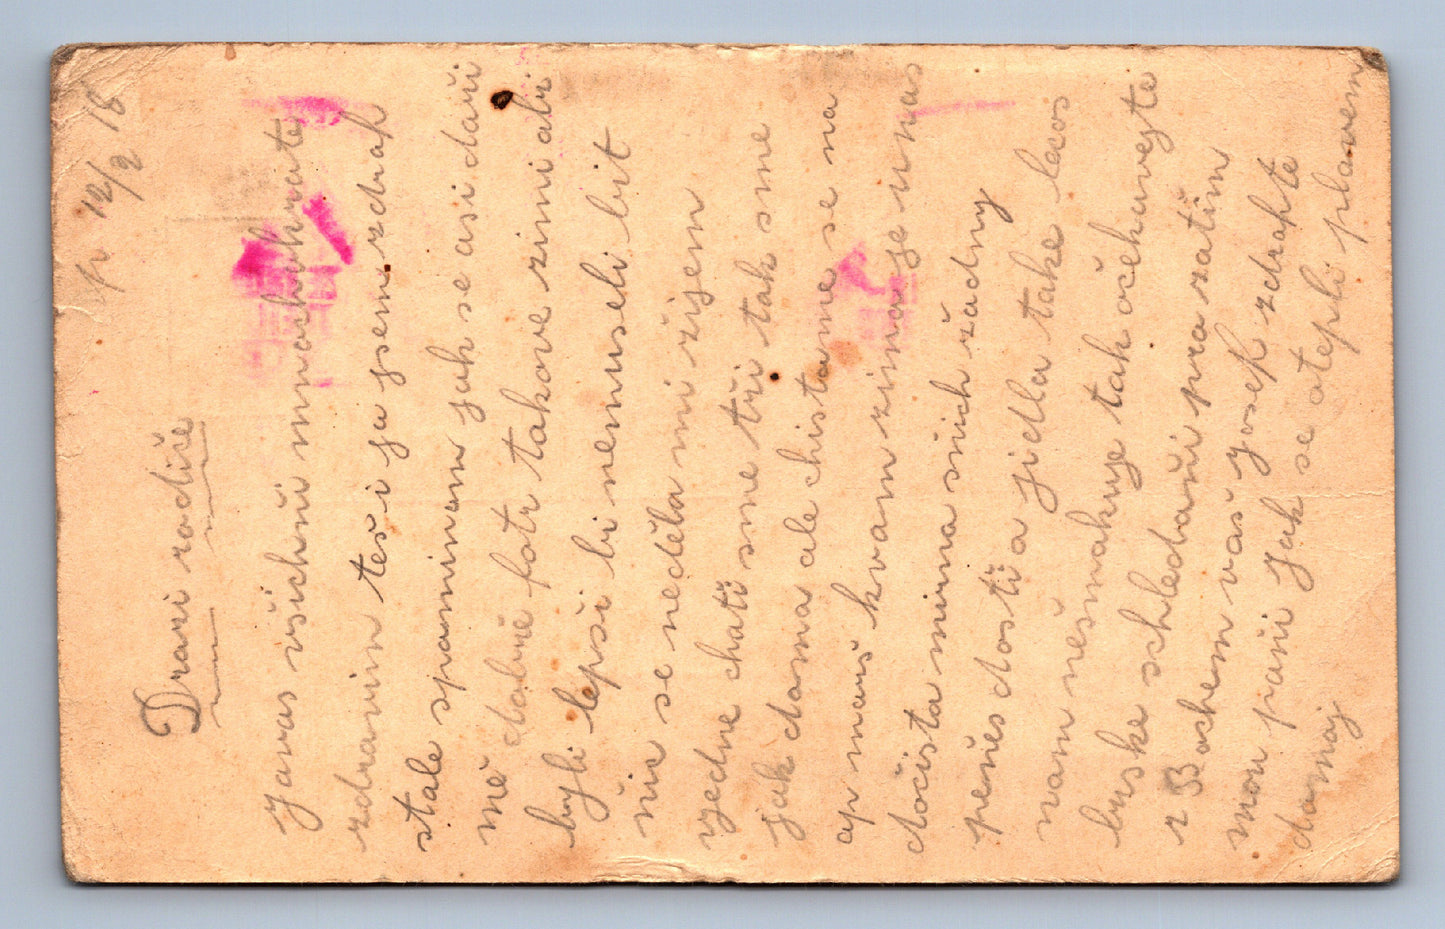 12/2 16
Drazi rodiče
Javas všichni mnohokrate
zdravim teši ja jsem zdrap
stale spominam jak se asi daři
mě dobře fotr takove zimi abi
byli lepši bi nemuseli bit
nic se neděla mi zijem
vjedne chati sme tři tak sme
jak doma ale chistame se na
maš kvam zima je unas
dočista mirna snich žadny
peňes dosti a jidla take lecos
vam nešmakuje tak očekuvejte
buske schledani pra zatim
z Bochem vaš Josef zdrafte
mou pani Jak se otepli plavem
domoj